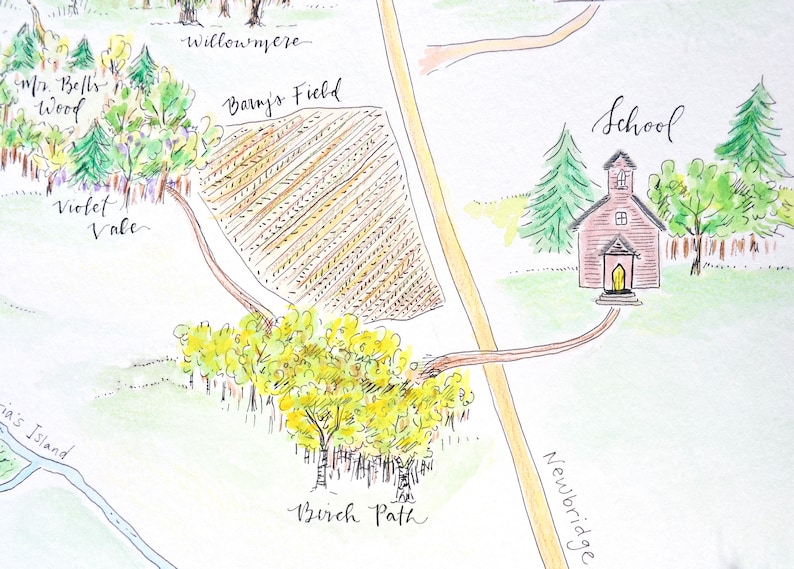 Willowmere
Mr. Bell's
Wood
Barry's Field
School
Violet
Vale
ia's Island
Birch Path
Newbridge